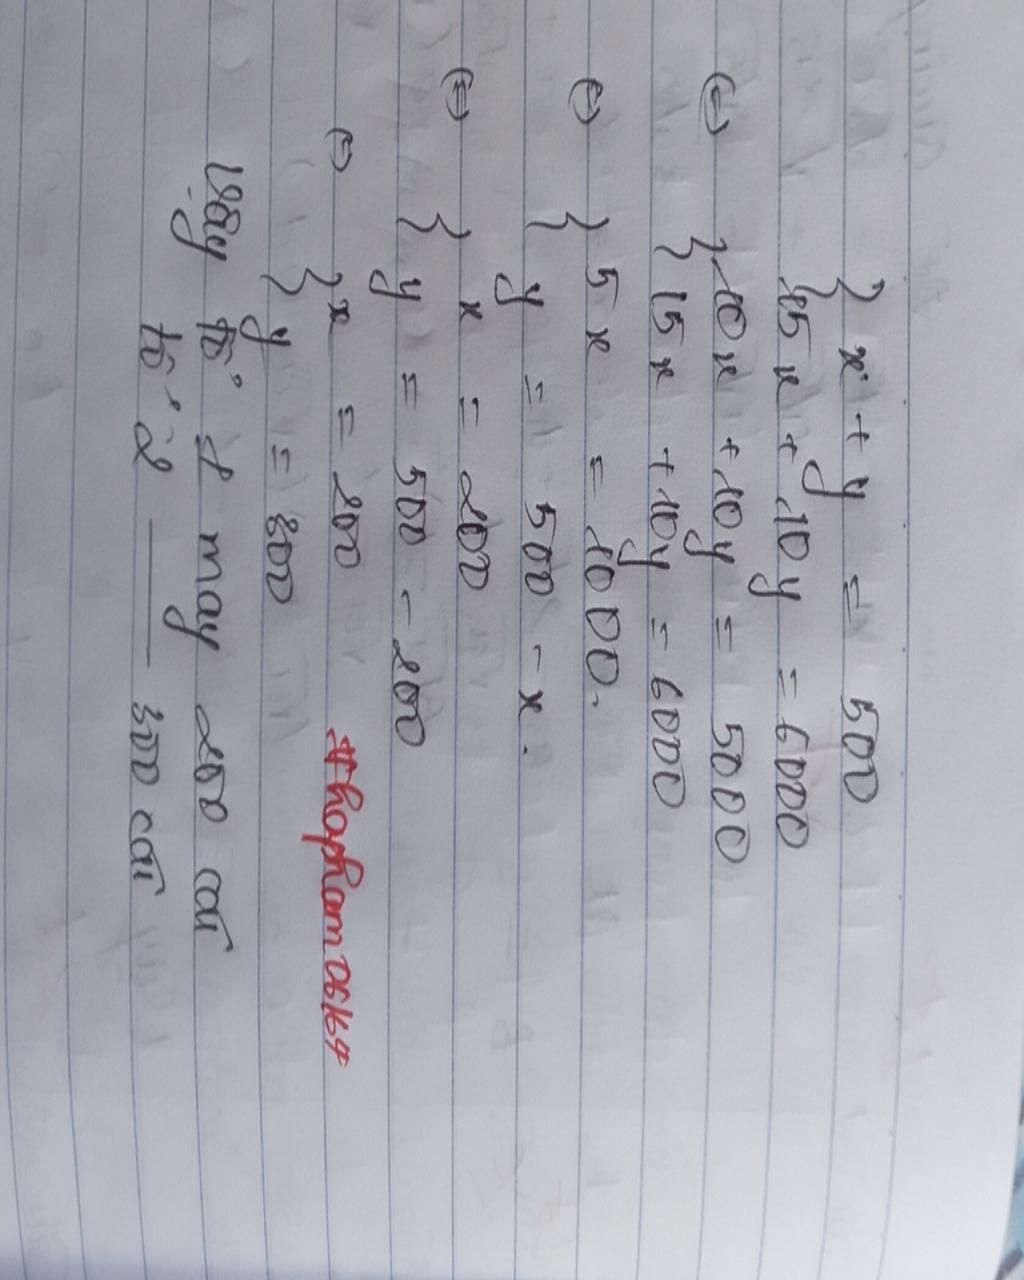 { x + y = 500
{ 15x + 10y = 6000
(=) { 10x + 10y = 5000
{ 15x + 10y = 6000
(=) { 5x = 1000.
{ y = 500 - x.
(=) { x = 200
{ y = 500 - 200
(=) { x = 200
{ y = 300
#hapham0616
Vậy tổ 1 may 200 cái
tổ 2 —— 300 cái